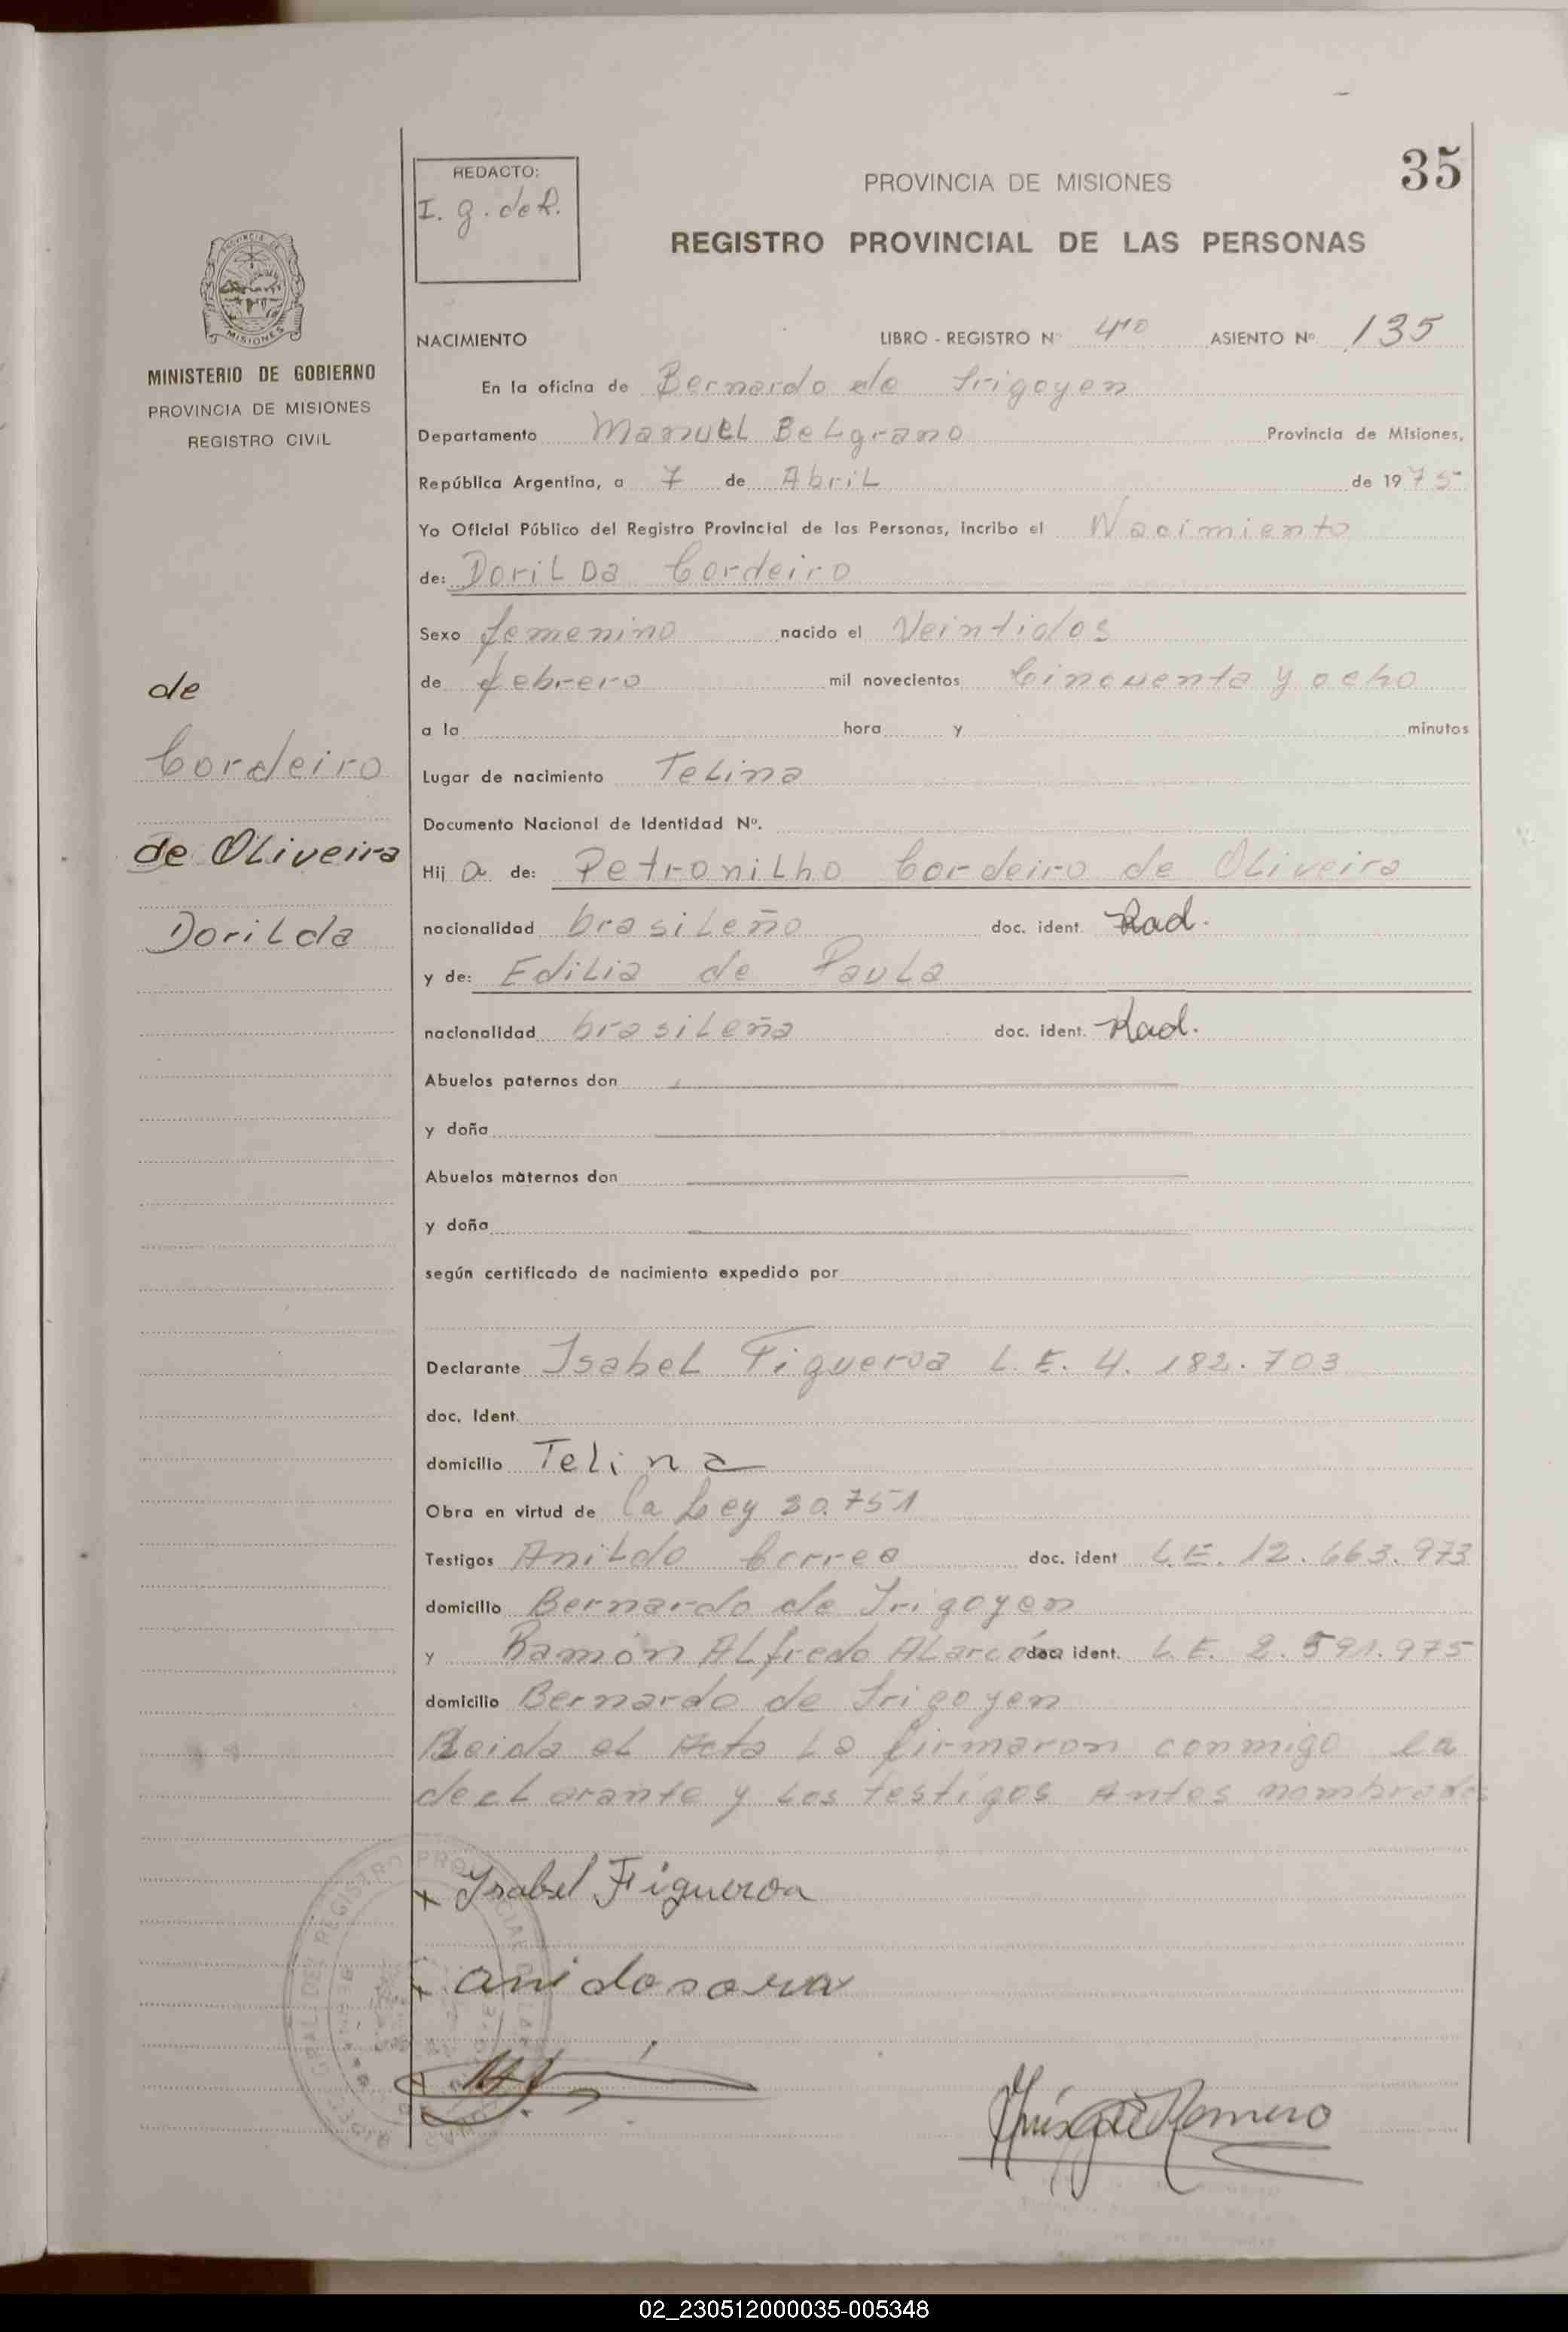 35
REDACTO:
I. g. de R.
PROVINCIA DE MISIONES
REGISTRO PROVINCIAL DE LAS PERSONAS
MISIONES
MINISTERIO DE GOBIERNO
PROVINCIA DE MISIONES
REGISTRO CIVIL
de
Cordeiro
de Oliveira
Dorilda
NACIMIENTO LIBRO - REGISTRO Nº ASIENTO Nº 135
En la oficina de Bernardo de Irigoyen
Departamento Manuel Belgrano Provincia de Misiones,
República Argentina, a 7 de Abril de 1975
Yo Oficial Público del Registro Provincial de las Personas, incribo el Nacimiento
de: Dorilda Cordeiro
Sexo femenino nacido el Veintidos
de febrero mil novecientos Cincuenta y ocho
a la hora y minutos
Lugar de nacimiento Telina
Documento Nacional de Identidad Nº.
Hij a de: Petronilho Cordeiro de Oliveira
nacionalidad brasileño doc. ident. Rad.
y de: Edilia de Paula
nacionalidad brasileña doc. ident. Rad.
Abuelos paternos don
y doña
Abuelos maternos don
y doña
según certificado de nacimiento expedido por
Declarante Isabel Figueroa L. E. 4. 182. 703
doc. Ident.
domicilio Telina
Obra en virtud de la Ley 20.751
Testigos Anildo Correa doc. ident L.E. 12. 663. 973
domicilio Bernardo de Irigoyen
y Ramón Alfredo Alarcón doc. ident. L E. 2. 591. 975
domicilio Bernardo de Irigoyen
Leida el Acta la firmaron conmigo la
declarante y los testigos Antes nombrados
x Isabel Figueroa
02_230512000035-005348